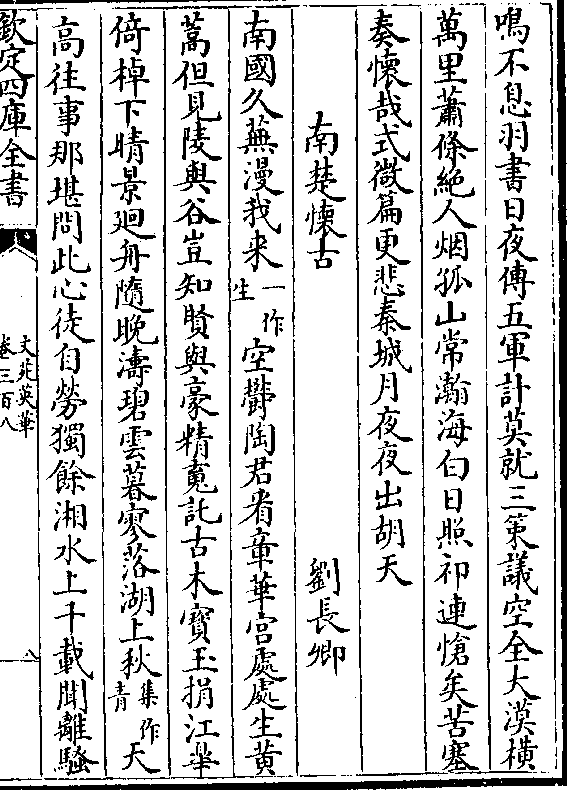 鳴不息羽書日夜傳五軍計莫就三策議空全大漠橫
萬里蕭條絶人烟孤山當瀚海白日照祁連愴矣苦塞
奏懷哉式微篇更悲秦城月夜夜出胡天
南楚懷古 劉長卿
南國久蕪漫我来一作生空鬱陶君看章華宫處處生黄
蒿但見陵與谷豈知賢與豪精䰟託古木寶玉捐江臯
倚棹下晴景廻舟隨晚濤碧雲暮寥落湖上秋集作青天
高往事那堪問此心徒自勞獨餘湘水上千載聞離騷
欽定四庫全書
文苑英華
卷三百八
八